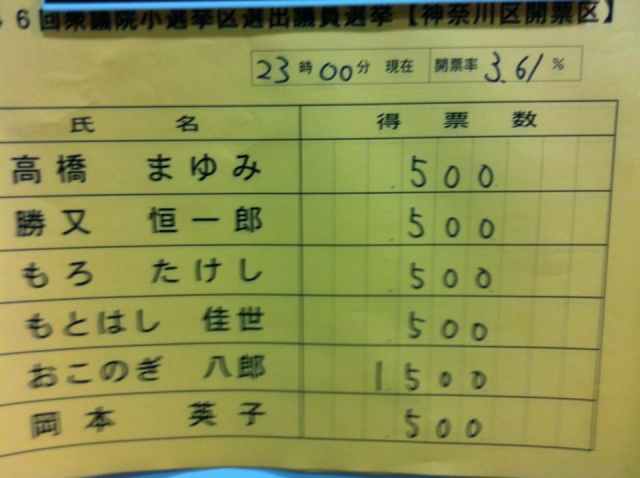 ６回衆議院小選挙区選出議員選挙【神奈川区開票区】
23時00分 現在 開票率 3.61%
氏名 得票数
高橋 まゆみ 500
勝又 恒一郎 500
もろ たけし 500
もとはし 佳世 500
おこのぎ 八郎 1500
岡本 英子 500